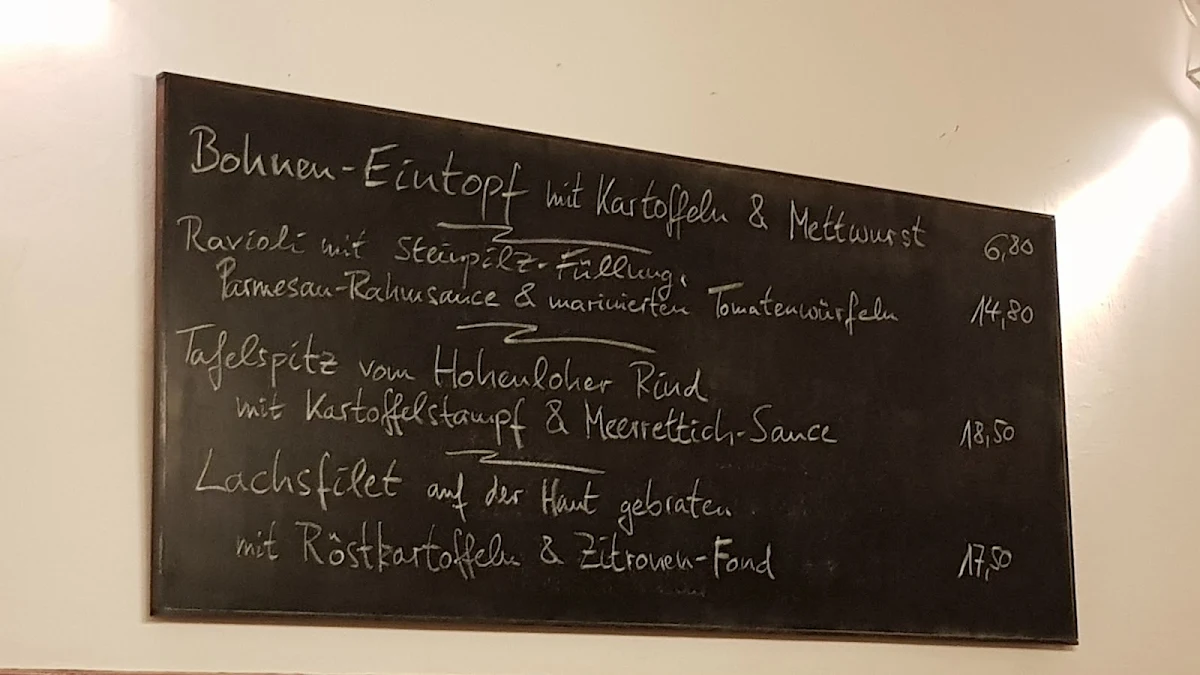 Bohnen-Eintopf mit Kartoffeln & Mettwurst 6,80
Ravioli mit Steinpilz-Füllung,
Parmesan-Rahmsauce & marinierten Tomatenwürfeln 14,80
Tafelspitz vom Hohenloher Rind
mit Kartoffelstampf & Meerrettich-Sauce 18,50
Lachsfilet auf der Haut gebraten
mit Röstkartoffeln & Zitronen-Fond 17,50